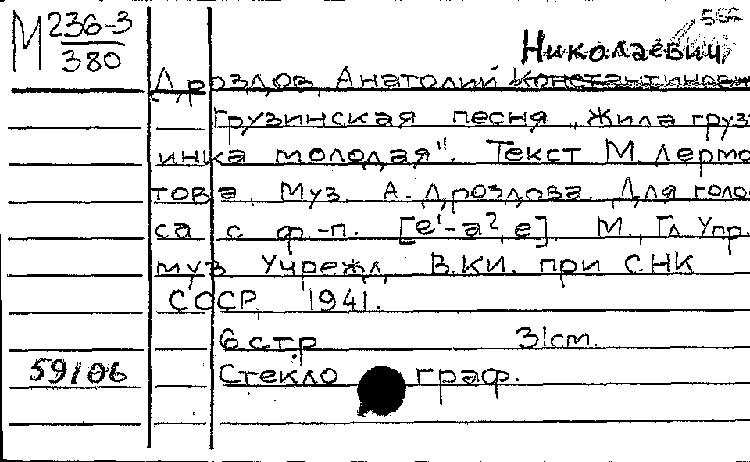 М 236-3
380
Николаевич
Дроздов, Анатолий Константинович
Грузинская песня „Жила груз-
инка молодая". Текст М. Лермо-
това. Муз. А. Дроздова. Для голо-
са с ф.-п. [e¹-a², e]. М., Гл. Упр.
муз. Учрежд. В.К.И. при СНК
СССР, 1941.
6 стр. 31 см.
59/06 Стекло граф.